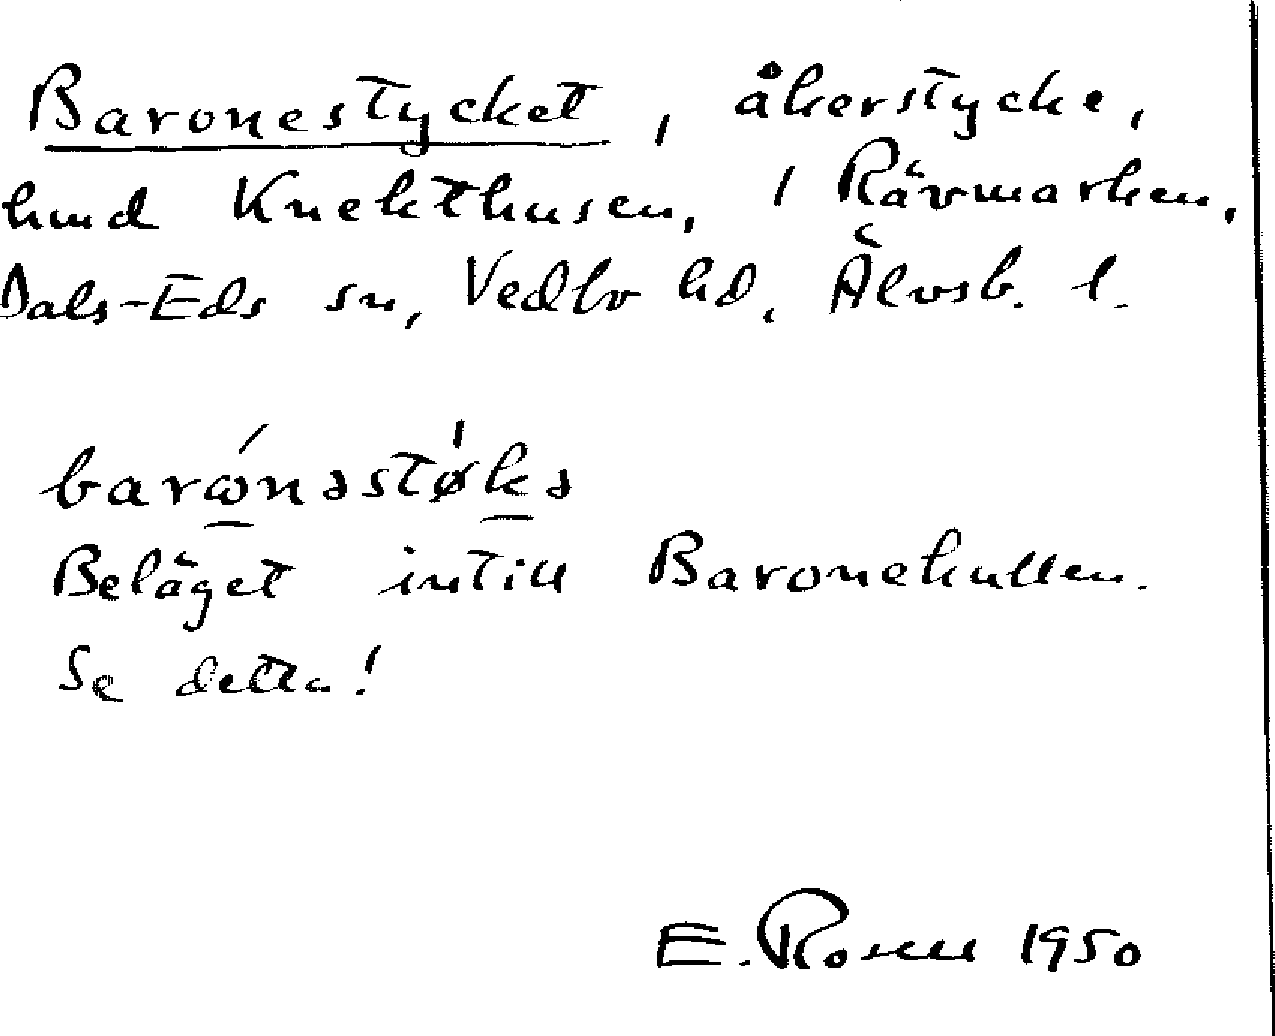 Baronestycket, åkerstycke,
hmd Knekthusen, 1 Rävmarken,
Dals-Eds sn, Vedbo hd, Älvsb. l.
barωnəstøkə
Beläget intill Baronekullen.
Se detta!
E. Rosell 1950